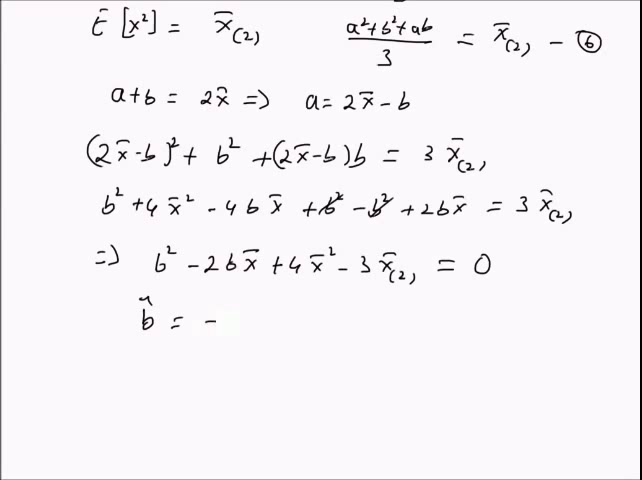 E [x²] = x̄₍₂₎   (a²+b²+ab)/3 = x̄₍₂₎ - ⑥
a+b = 2x̄ => a = 2x̄ - b
(2x̄-b)² + b² + (2x̄-b)b = 3 x̄₍₂₎
b² + 4x̄² - 4bx̄ + b² - b² + 2bx̄ = 3 x̄₍₂₎
=> b² - 2bx̄ + 4x̄² - 3x̄₍₂₎ = 0
b̂ = -